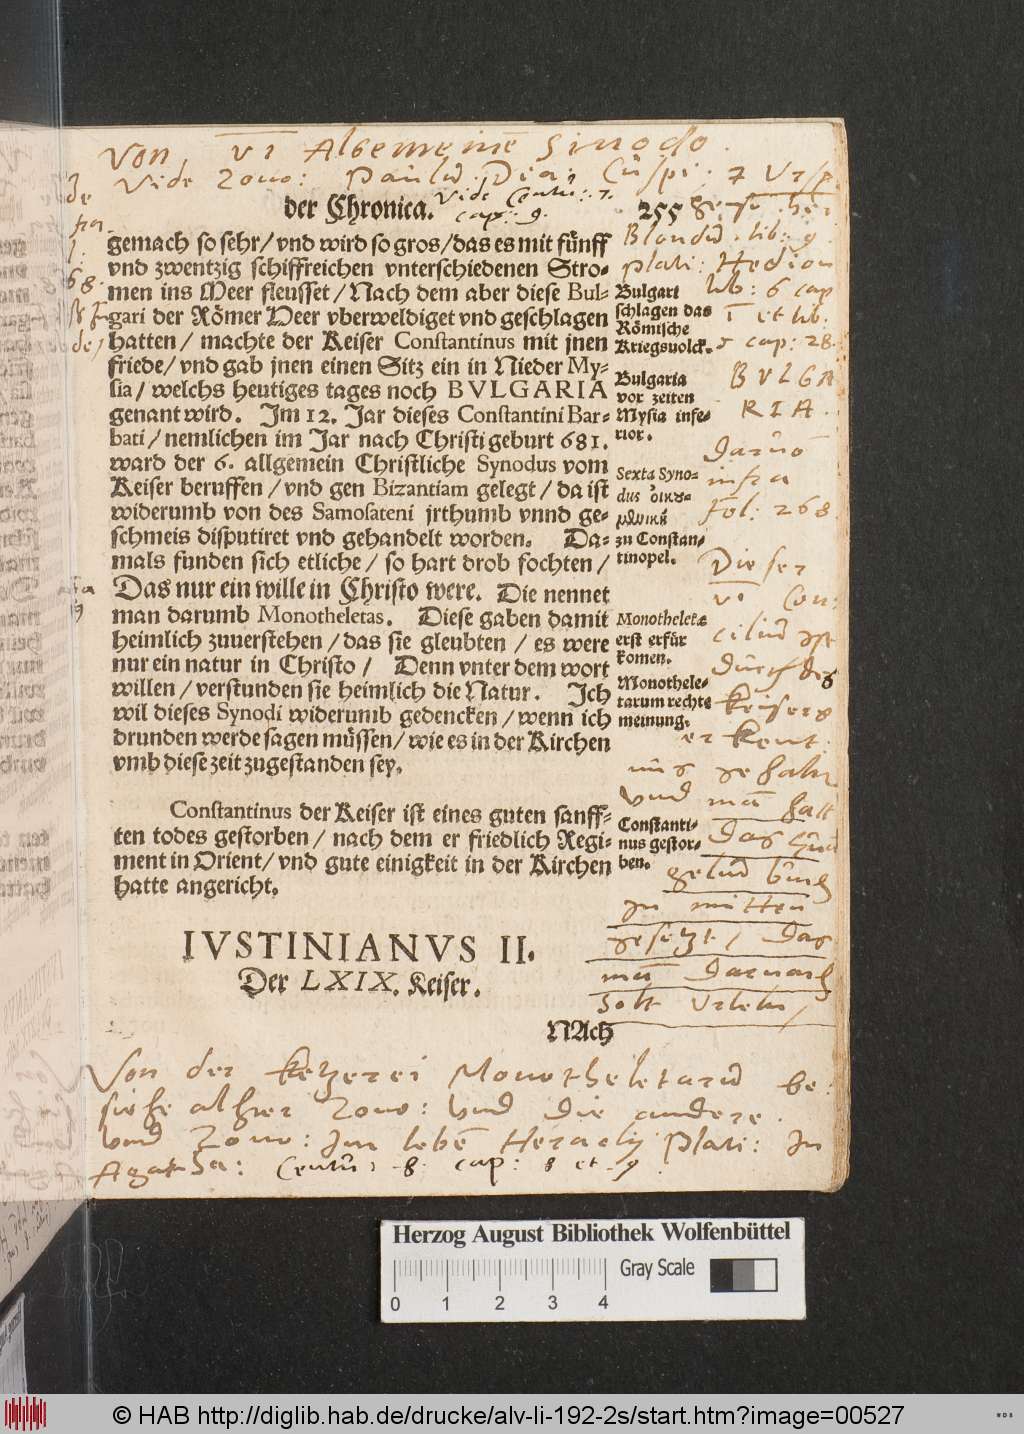 Von VI Algemeinē Sinodo.
Vide Zono: Paulū Dia; Cuspi: 7 Ursp
Vide Centu: 7.
cap: 9.
der Chronica. 255
gemach so sehr/vnd wird so gros/das es mit fünff
vnd zwentzig schiffreichen vnterschiedenen Stro-
men ins Meer fleusset/Nach dem aber diese Bul-
gari der Römer Heer vberweldiget vnd geschlagen
hatten/ machte der Keiser Constantinus mit jnen
friede/vnd gab jnen einen Sitz ein in Nieder My-
sia/welchs heutiges tages noch BVLGARIA
genant wird. Im 12. Jar dieses Constantini Bar-
bati/nemlichen im Jar nach Christi geburt 681.
ward der 6. allgemein Christliche Synodus vom
Keiser beruffen/vnd gen Bizantiam gelegt/da ist
widerumb von des Samosateni jrthumb vnnd ge-
schmeis disputiret vnd gehandelt worden. Da-
mals funden sich etliche/so hart drob fochten/
Das nur ein wille in Christo were. Die nennet
man darumb Monotheletas. Diese gaben damit
heimlich zuuerstehen/das sie gleubten/es were
nur ein natur in Christo/ Denn vnter dem wort
willen/verstunden sie heimlich die Natur. Ich
wil dieses Synodi widerumb gedencken/wenn ich
drunden werde sagen müssen/wie es in der Kirchen
vmb diese zeit zugestanden sey.
Constantinus der Keiser ist eines guten sanff-
ten todes gestorben/nach dem er friedlich Regi-
ment in Orient/vnd gute einigkeit in der Kirchen
hatte angericht.
IVSTINIANVS II.
Der LXIX. Keiser.
NAch
Bulgari
schlagen das
Römische
Kriegsuolck.
Bulgaria
vor zeiten
Mysia infe-
rior.
Sexta Syno-
dus
zu Constan-
tinopel.
Monotheletæ
erst erfür
komen.
Monothele-
tarum rechte
meinung.
Constanti-
nus gestor-
ben.
Blondū. lib: 9.
plati: Hedion
lib: 6 cap
I et lib.
5 cap: 28.
BVLGA
RIA.
Daruō
infra
fol: 268
Dieser
VI Con:
ciliū ist
durch des
Keisers
er Kent:
vnd man hatt
Das
in mitten
gesetzt, Das
mā Darnach
Solt Urteln,
Von der Ketzerei Monotheletarū be:
siehe alhier Zono: vnd die andere.
vnd Zono: Im lebē Heraclij Plati: In
Agatha: Centū: 8. cap: 8 et 9.
Herzog August Bibliothek Wolfenbüttel
Gray Scale
0 1 2 3 4
© HAB http://diglib.hab.de/drucke/alv-li-192-2s/start.htm?image=00527